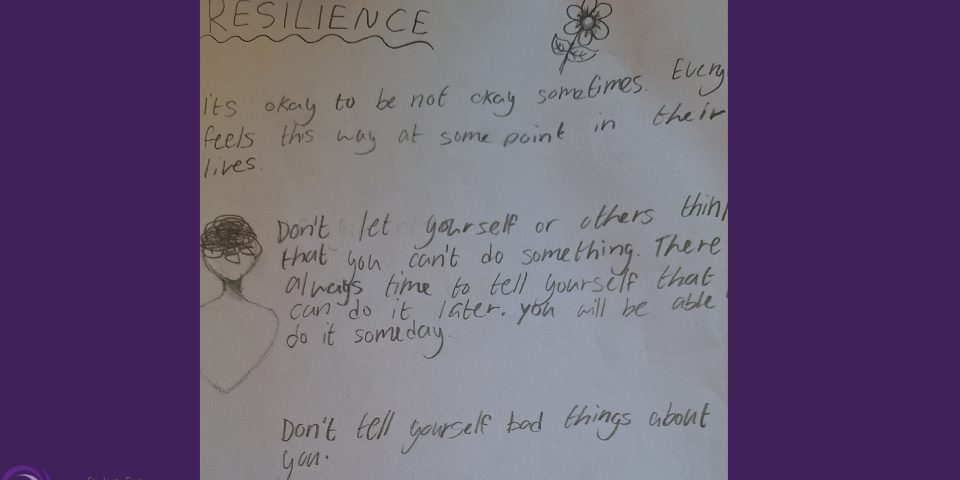 RESILIENCE
its okay to be not okay sometimes. Every
feels this way at some point in their
lives.
Don't let yourself or others thin
that you can't do something. There
always time to tell yourself that
can do it later. you will be able
do it someday.
Don't tell yourself bad things about
you.